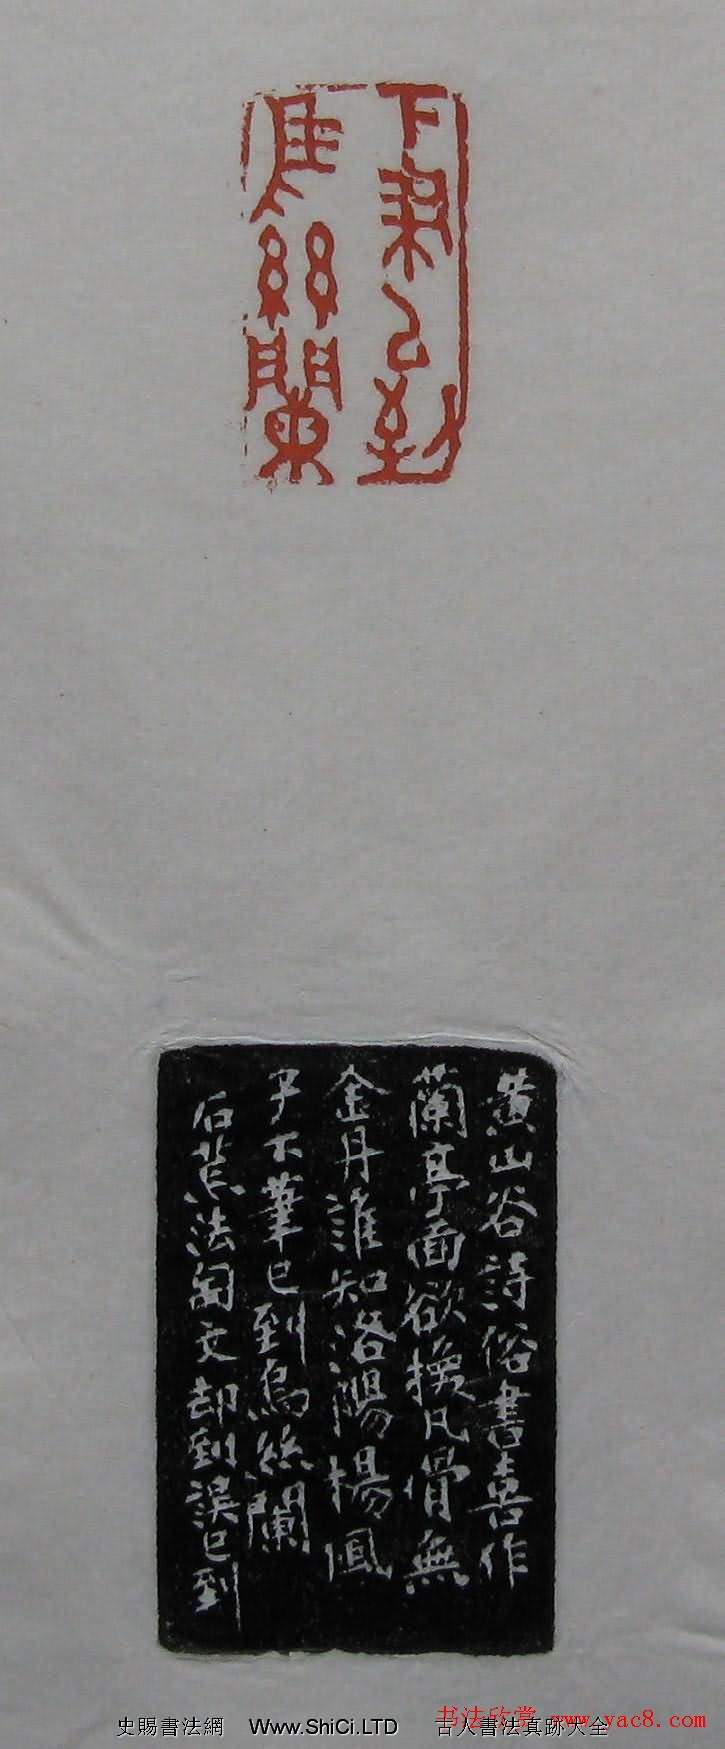 下筆已到
烏絲闌
黃山谷詩俗書喜作
蘭亭面欲換凡骨無
金丹誰知洛陽楊風
子下筆已到烏絲闌
法匋文却到誤已到
史賜書法網 Www.ShiCi.LTD 古人書法真跡大全
书法欣赏 www.yac8.com